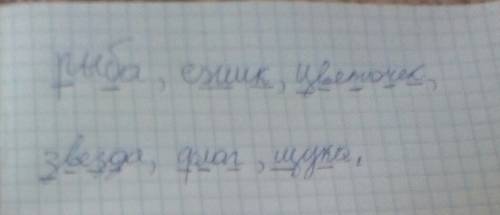 рыба, ежик, цветочек,
звезда, флаг, щука,